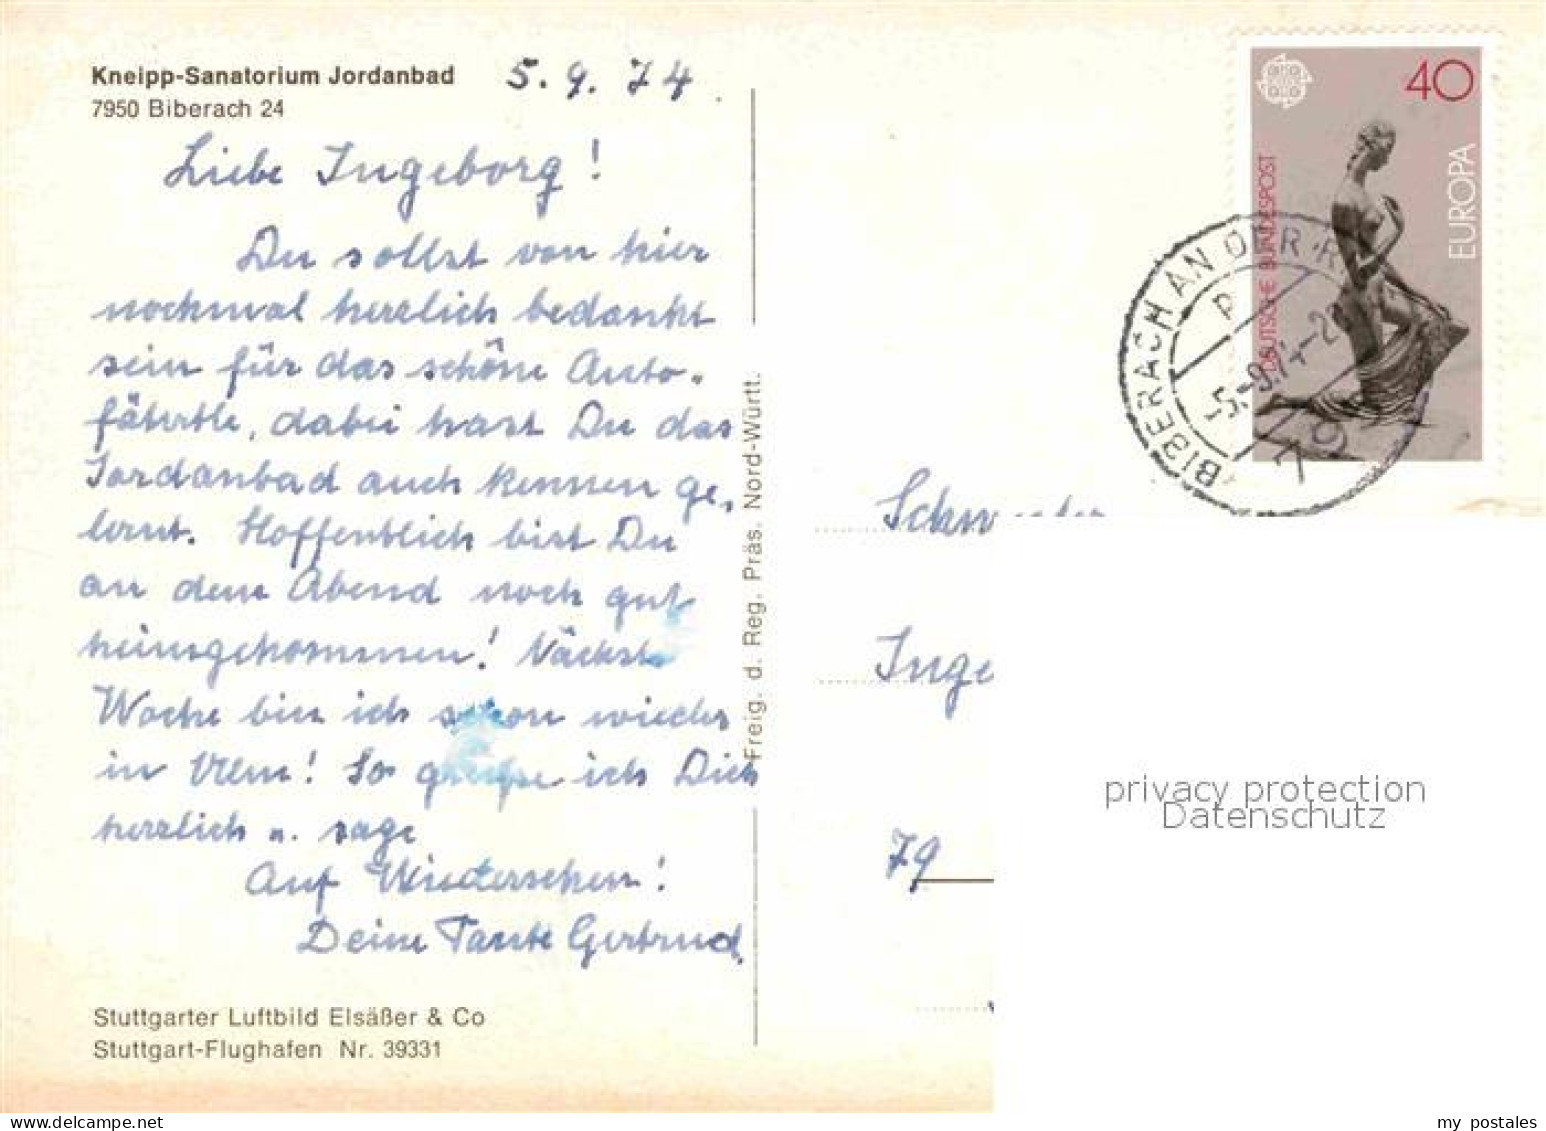 Kneipp-Sanatorium Jordanbad
7950 Biberach 24
5.9.74
Liebe Ingeborg!
Du sollst von hier
nochmal herzlich bedankt
sein für das schöne Auto-
fährtle, dabei hast Du das
Jordanbad auch kennen ge-
lernt. Hoffentlich bist Du
an dem Abend noch gut
heimgekommen! Nächste
Woche bin ich schon wieder
in Ulm! So grüße ich Dich
herzlich u. sage
Auf Wiedersehen!
Deine Tante Gertrud.
Stuttgarter Luftbild Elsäßer & Co
Stuttgart-Flughafen Nr. 39331
Freig. d. Reg. Präs. Nord-Württ.
40
DEUTSCHE BUNDESPOST
EUROPA
BIBERACH AN DER RI
-5.-9.74-2
79
Schwester
Inge
79
privacy protection
Datenschutz
my postales